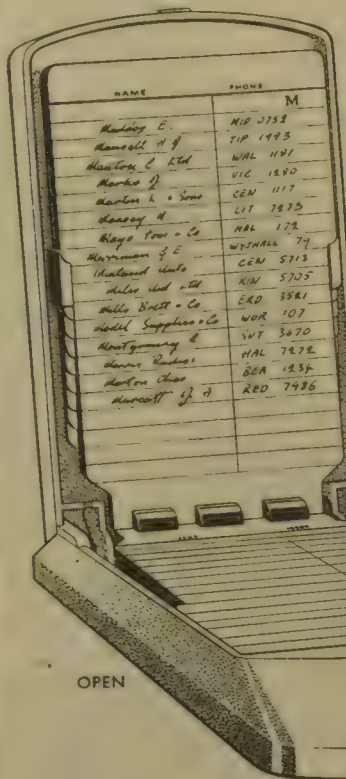 NAME PHONE
M
Maddox E. MID 0752
Mansell H J TIP 1993
Manton C Ltd WAL 1181
Marks J VIC 1280
Martin L & Sons CEN 1117
Massey H LIT 7273
Mayo Tom & Co HAL 172
Merriman J E WYTHALL 79
Midland Auto CEN 5713
Miles and Ltd KIN 5705
Mills Brett & Co ERD 3521
Model Supplies & Co WOR 107
Montgomery C SUT 3670
Morris Radios HAL 7272
Morton Chas BEA 1234
Murcott J A RED 7486
OPEN